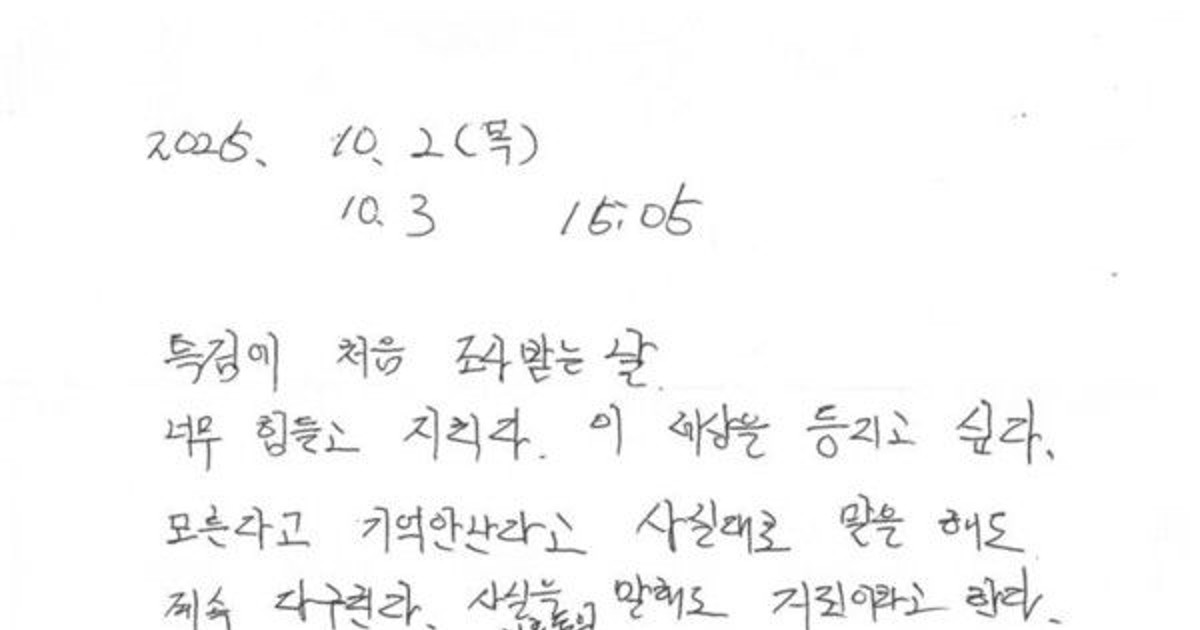 2025. 10. 2(목)
10. 3 15:05
특검에 처음 조사받는 날.
너무 힘들고 지치다. 이 세상을 등지고 싶다.
모른다고 기억안난다고 사실대로 말을 해도
계속 다구친다. 사실을 말해도 거짓이라고 한다.